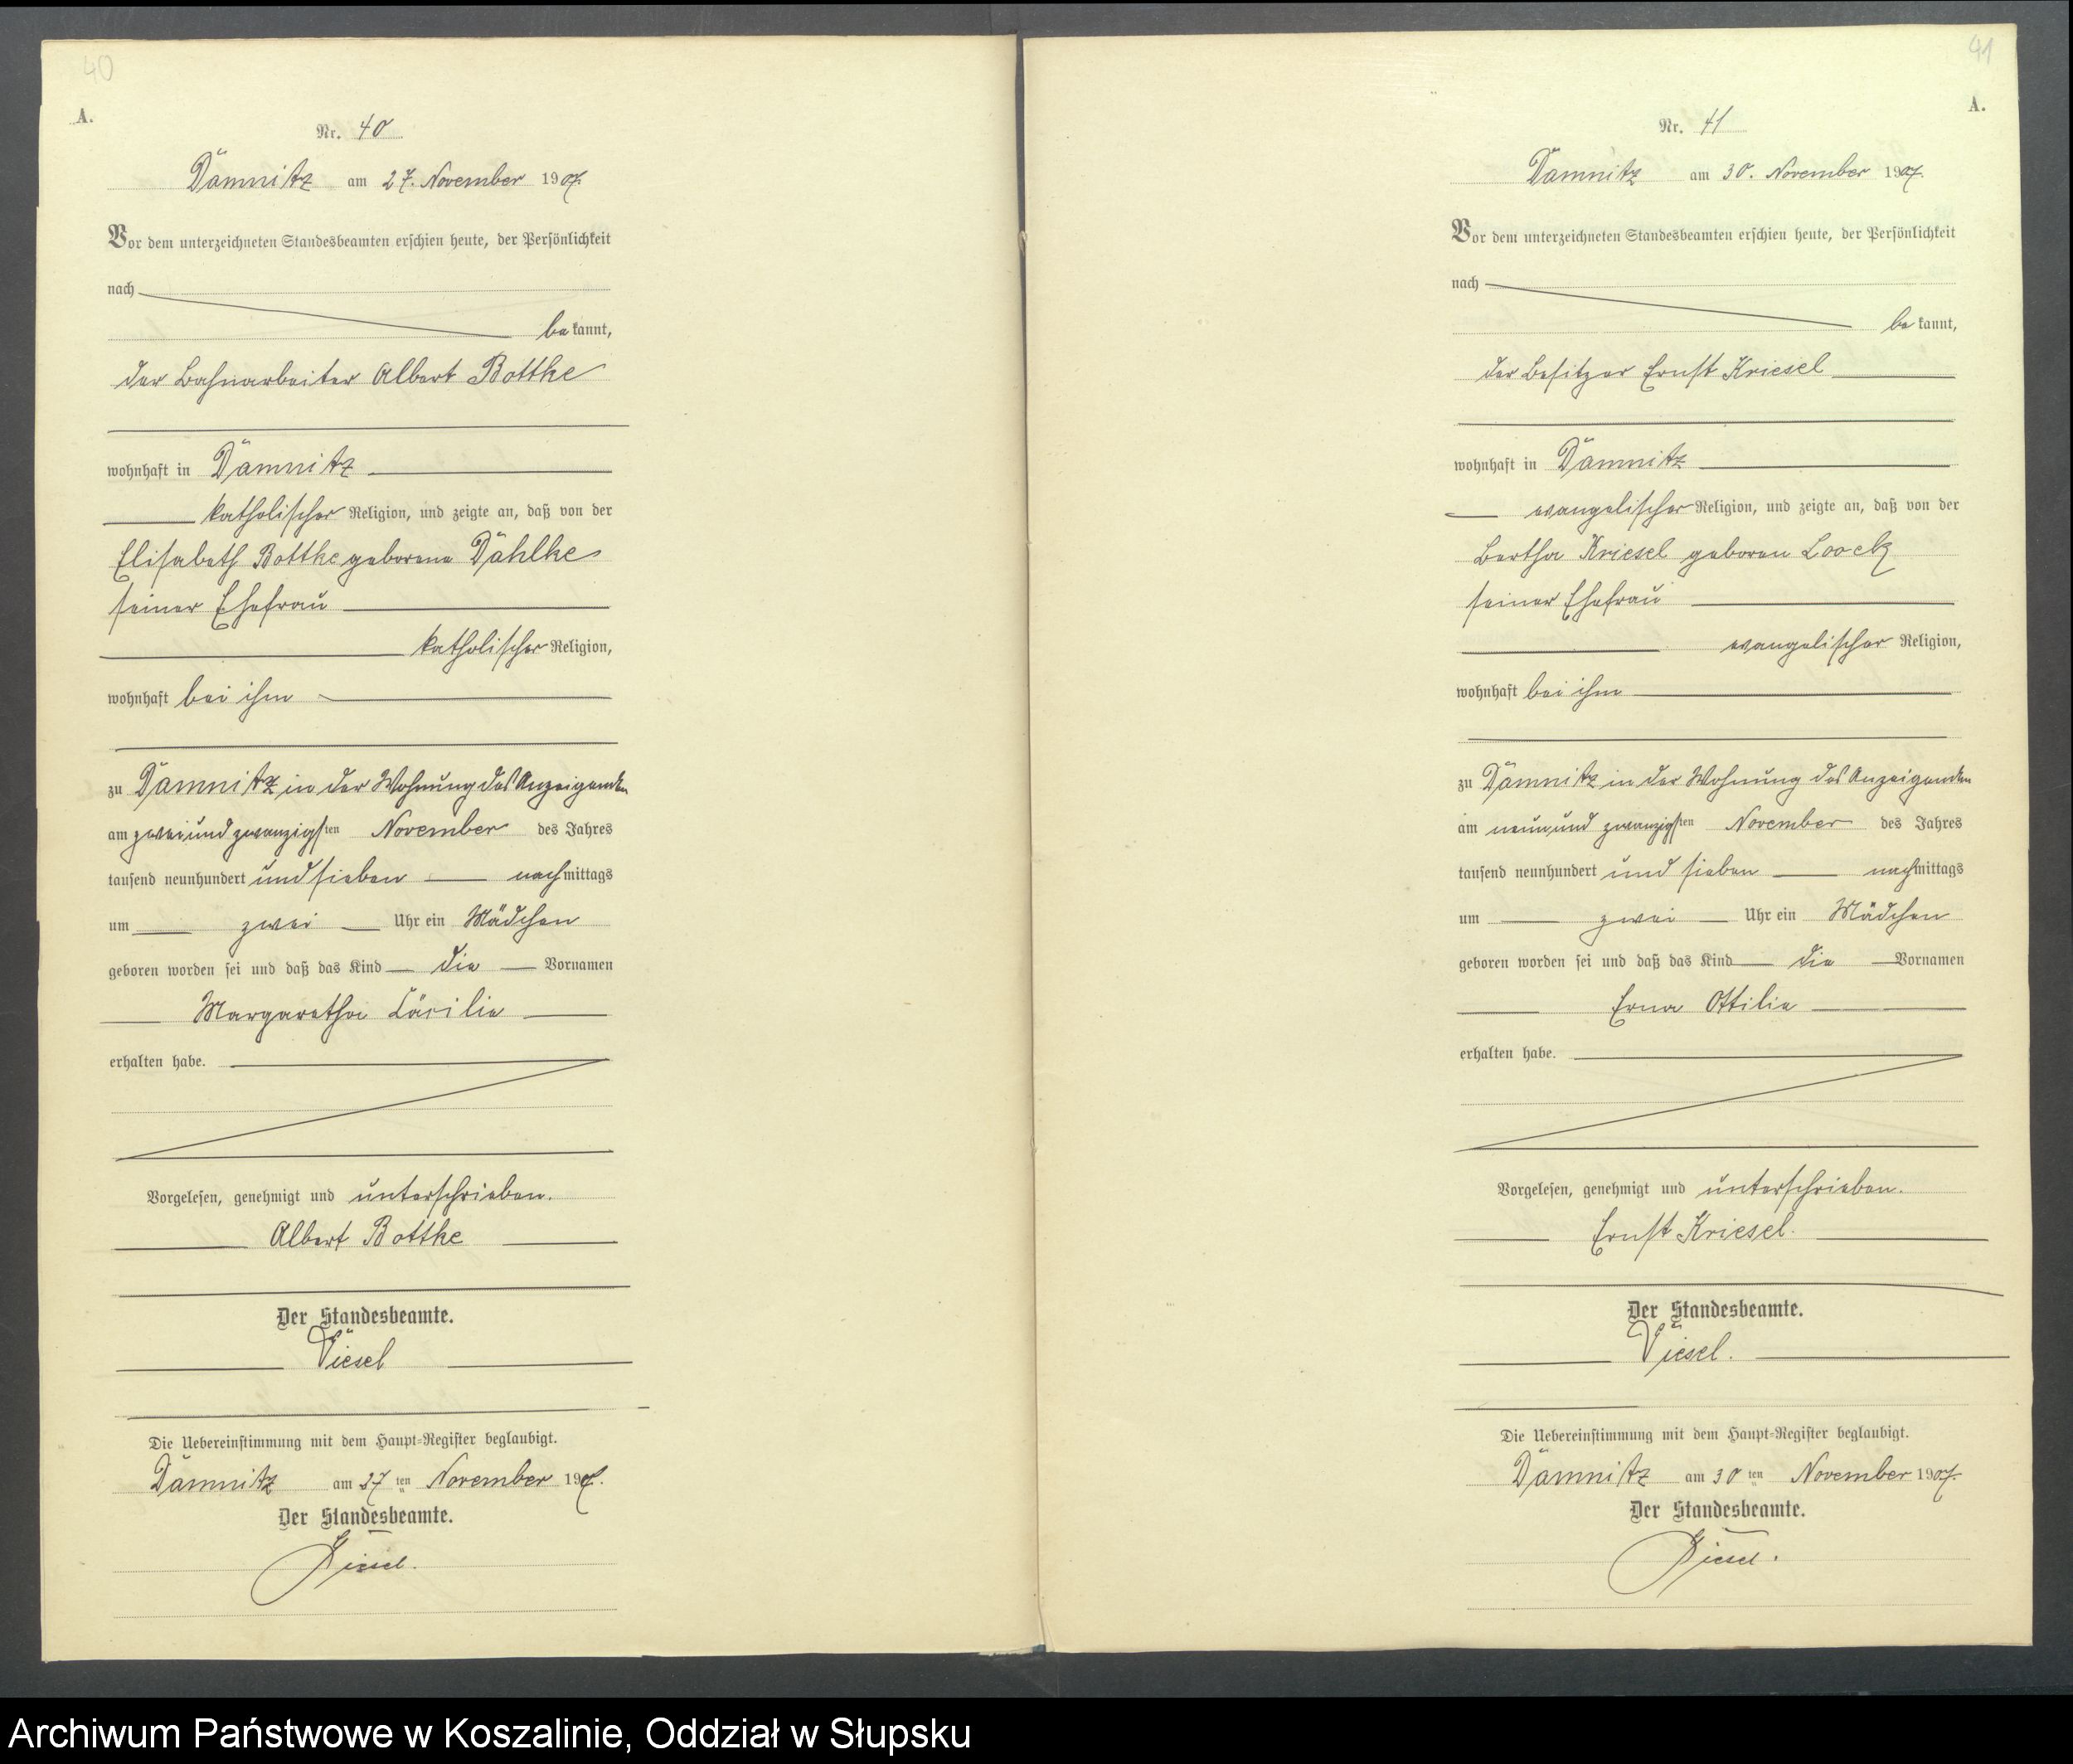 40
A.
Nr. 40
Damnitz am 27. November 1907.
Vor dem unterzeichneten Standesbeamten erschien heute, der Persönlichkeit
nach
be kannt,
der Bahnarbeiter Albert Bottke
wohnhaft in Damnitz
katholischer Religion, und zeigte an, daß von der
Elisabeth Bottke geborene Dahlke
seiner Ehefrau
katholischer Religion,
wohnhaft bei ihm
zu Damnitz in der Wohnung des Anzeigenden
am zwei und zwanzigsten November des Jahres
tausend neunhundert und sieben nachmittags
um zwei Uhr ein Mädchen
geboren worden sei und daß das Kind die Vornamen
Margaretha Cäcilie
erhalten habe.
Vorgelesen, genehmigt und unterschrieben.
Albert Bottke
Der Standesbeamte.
Viesel
Die Uebereinstimmung mit dem Haupt-Register beglaubigt.
Damnitz am 27 ten November 1907.
Der Standesbeamte.
Viesel.
41
A.
Nr. 41
Damnitz am 30. November 1907.
Vor dem unterzeichneten Standesbeamten erschien heute, der Persönlichkeit
nach
be kannt,
der Besitzer Ernst Kriesel
wohnhaft in Damnitz
evangelischer Religion, und zeigte an, daß von der
Bertha Kriesel geboren
seiner Ehefrau
evangelischer Religion,
wohnhaft bei ihm
zu Damnitz in der Wohnung des Anzeigenden
am neun und zwanzigsten November des Jahres
tausend neunhundert und sieben nachmittags
um zwei Uhr ein Mädchen
geboren worden sei und daß das Kind die Vornamen
Erna Ottilie
erhalten habe.
Vorgelesen, genehmigt und unterschrieben.
Ernst Kriesel.
Der Standesbeamte.
Viesel.
Die Uebereinstimmung mit dem Haupt-Register beglaubigt.
Damnitz am 30 ten November 1907.
Der Standesbeamte.
Viesel.
Archiwum Państwowe w Koszalinie, Oddział w Słupsku